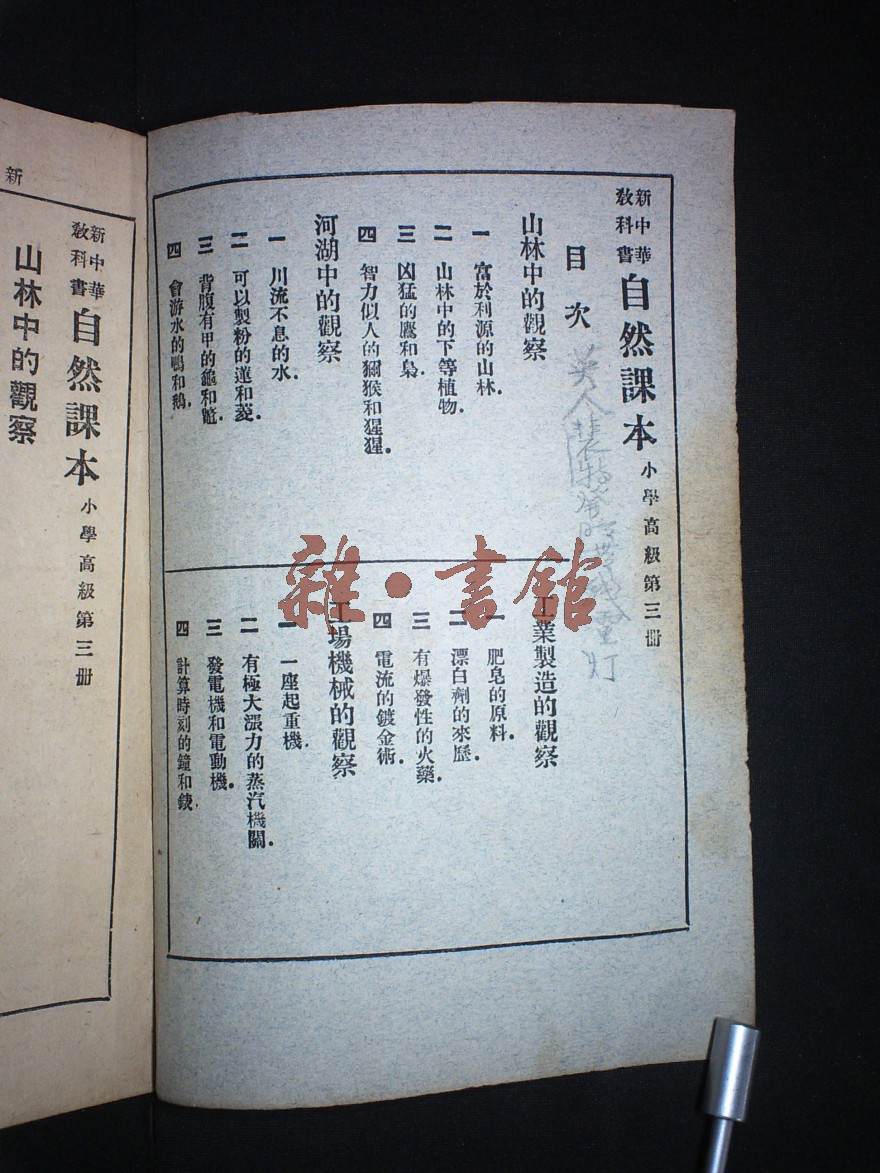 新中華教科書 自然課本 小學高級第三冊
目次
山林中的觀察
一 富於利源的山林.
二 山林中的下等植物.
三 凶猛的鷹和梟.
四 智力似人的獼猴和猩猩.
河湖中的觀察
一 川流不息的水.
二 可以製粉的蓮和菱.
三 背腹有甲的龜和鼈.
四 會游水的鴨和鵝.
工業製造的觀察
一 肥皂的原料.
二 漂白劑的來歷.
三 有爆發性的火藥.
四 電流的鍍金術.
工場機械的觀察
一 一座起重機.
二 有極大漲力的蒸汽機關.
三 發電機和電動機.
四 計算時刻的鐘和錶
雜·書館
新
新中華教科書 自然課本 小學高級第三冊
山林中的觀察